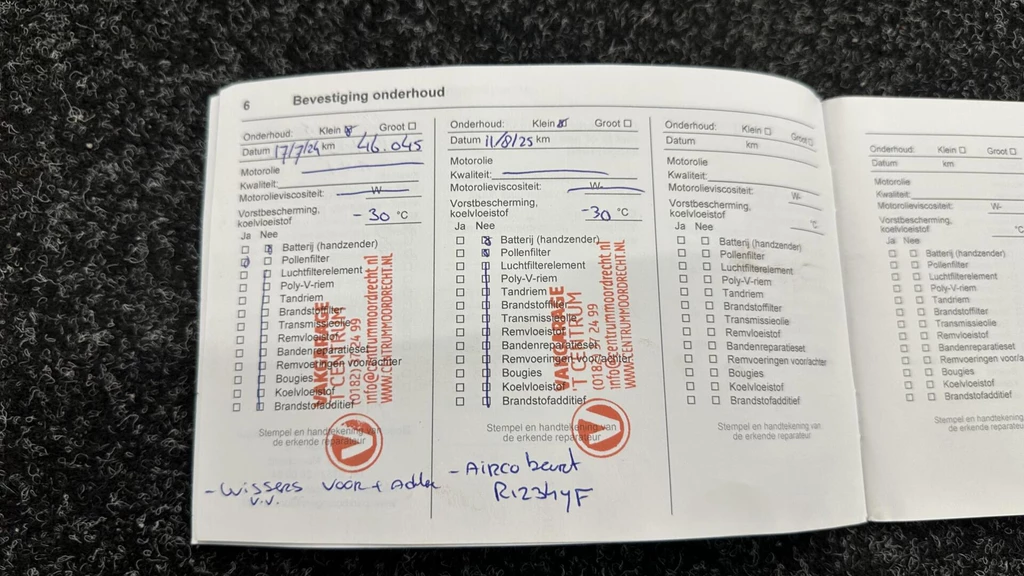 6 Bevestiging onderhoud
Onderhoud: Klein Groot
Datum 17/7/24 km 46.045
Motorolie
Kwaliteit:
Motorolieviscositeit: W-
Vorstbescherming,
koelvloeistof -30 °C
Ja Nee
Batterij (handzender)
Pollenfilter
Luchtfilterelement
Poly-V-riem
Tandriem
Brandstoffilter
Transmissieolie
Remvloeistof
Bandenreparatieset
Remvoeringen voor/achter
Bougies
Koelvloeistof
Brandstofadditief
VAKGARAGE
'T CENTRUM
info@centrummoordrecht.nl
WWW.CENTRUMMOORDRECHT.NL
Stempel en handtekening van
de erkende reparateur
- Wissers voor + Achter
v.v.
Onderhoud: Klein Groot
Datum 11/8/25 km
Motorolie
Kwaliteit:
Motorolieviscositeit: W-
Vorstbescherming,
koelvloeistof -30 °C
Ja Nee
Batterij (handzender)
Pollenfilter
Luchtfilterelement
Poly-V-riem
Tandriem
Brandstoffilter
Transmissieolie
Remvloeistof
Bandenreparatieset
Remvoeringen voor/achter
Bougies
Koelvloeistof
Brandstofadditief
VAKGARAGE
'T CENTRUM
(0182) 37 24 99
info@centrummoordrecht.nl
WWW.CENTRUMMOORDRECHT.NL
Stempel en handtekening van
de erkende reparateur
- Airco beurt
R1234yF
Onderhoud: Klein Groot
Datum km
Motorolie
Kwaliteit:
Motorolieviscositeit: W-
Vorstbescherming,
koelvloeistof °C
Ja Nee
Batterij (handzender)
Pollenfilter
Luchtfilterelement
Poly-V-riem
Tandriem
Brandstoffilter
Transmissieolie
Remvloeistof
Bandenreparatieset
Remvoeringen voor/achter
Bougies
Koelvloeistof
Brandstofadditief
Stempel en handtekening van
de erkende reparateur
Onderhoud: Klein Groot
Datum km
Motorolie
Kwaliteit:
Motorolieviscositeit: W-
Vorstbescherming,
koelvloeistof °C
Ja Nee
Batterij (handzender)
Pollenfilter
Luchtfilterelement
Poly-V-riem
Tandriem
Brandstoffilter
Transmissieolie
Remvloeistof
Bandenreparatieset
Remvoeringen voor/a
Bougies
Koelvloeistof
Brandstofadditief
Stempel en handtekening
de erkende reparateur